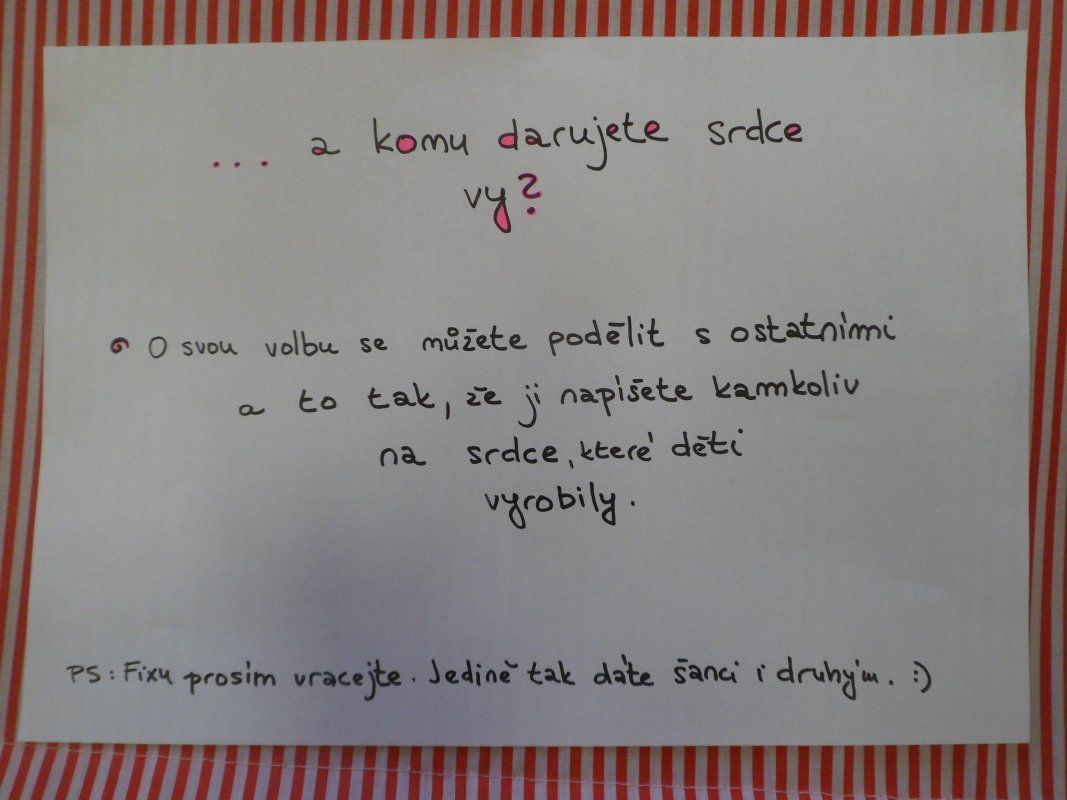 ... a komu darujete srdce
vy?
O svou volbu se můžete podělit s ostatními
a to tak, že ji napíšete kamkoliv
na srdce, které děti
vyrobily.
PS: Fixu prosím vracejte. Jedině tak dáte šanci i druhým. :)